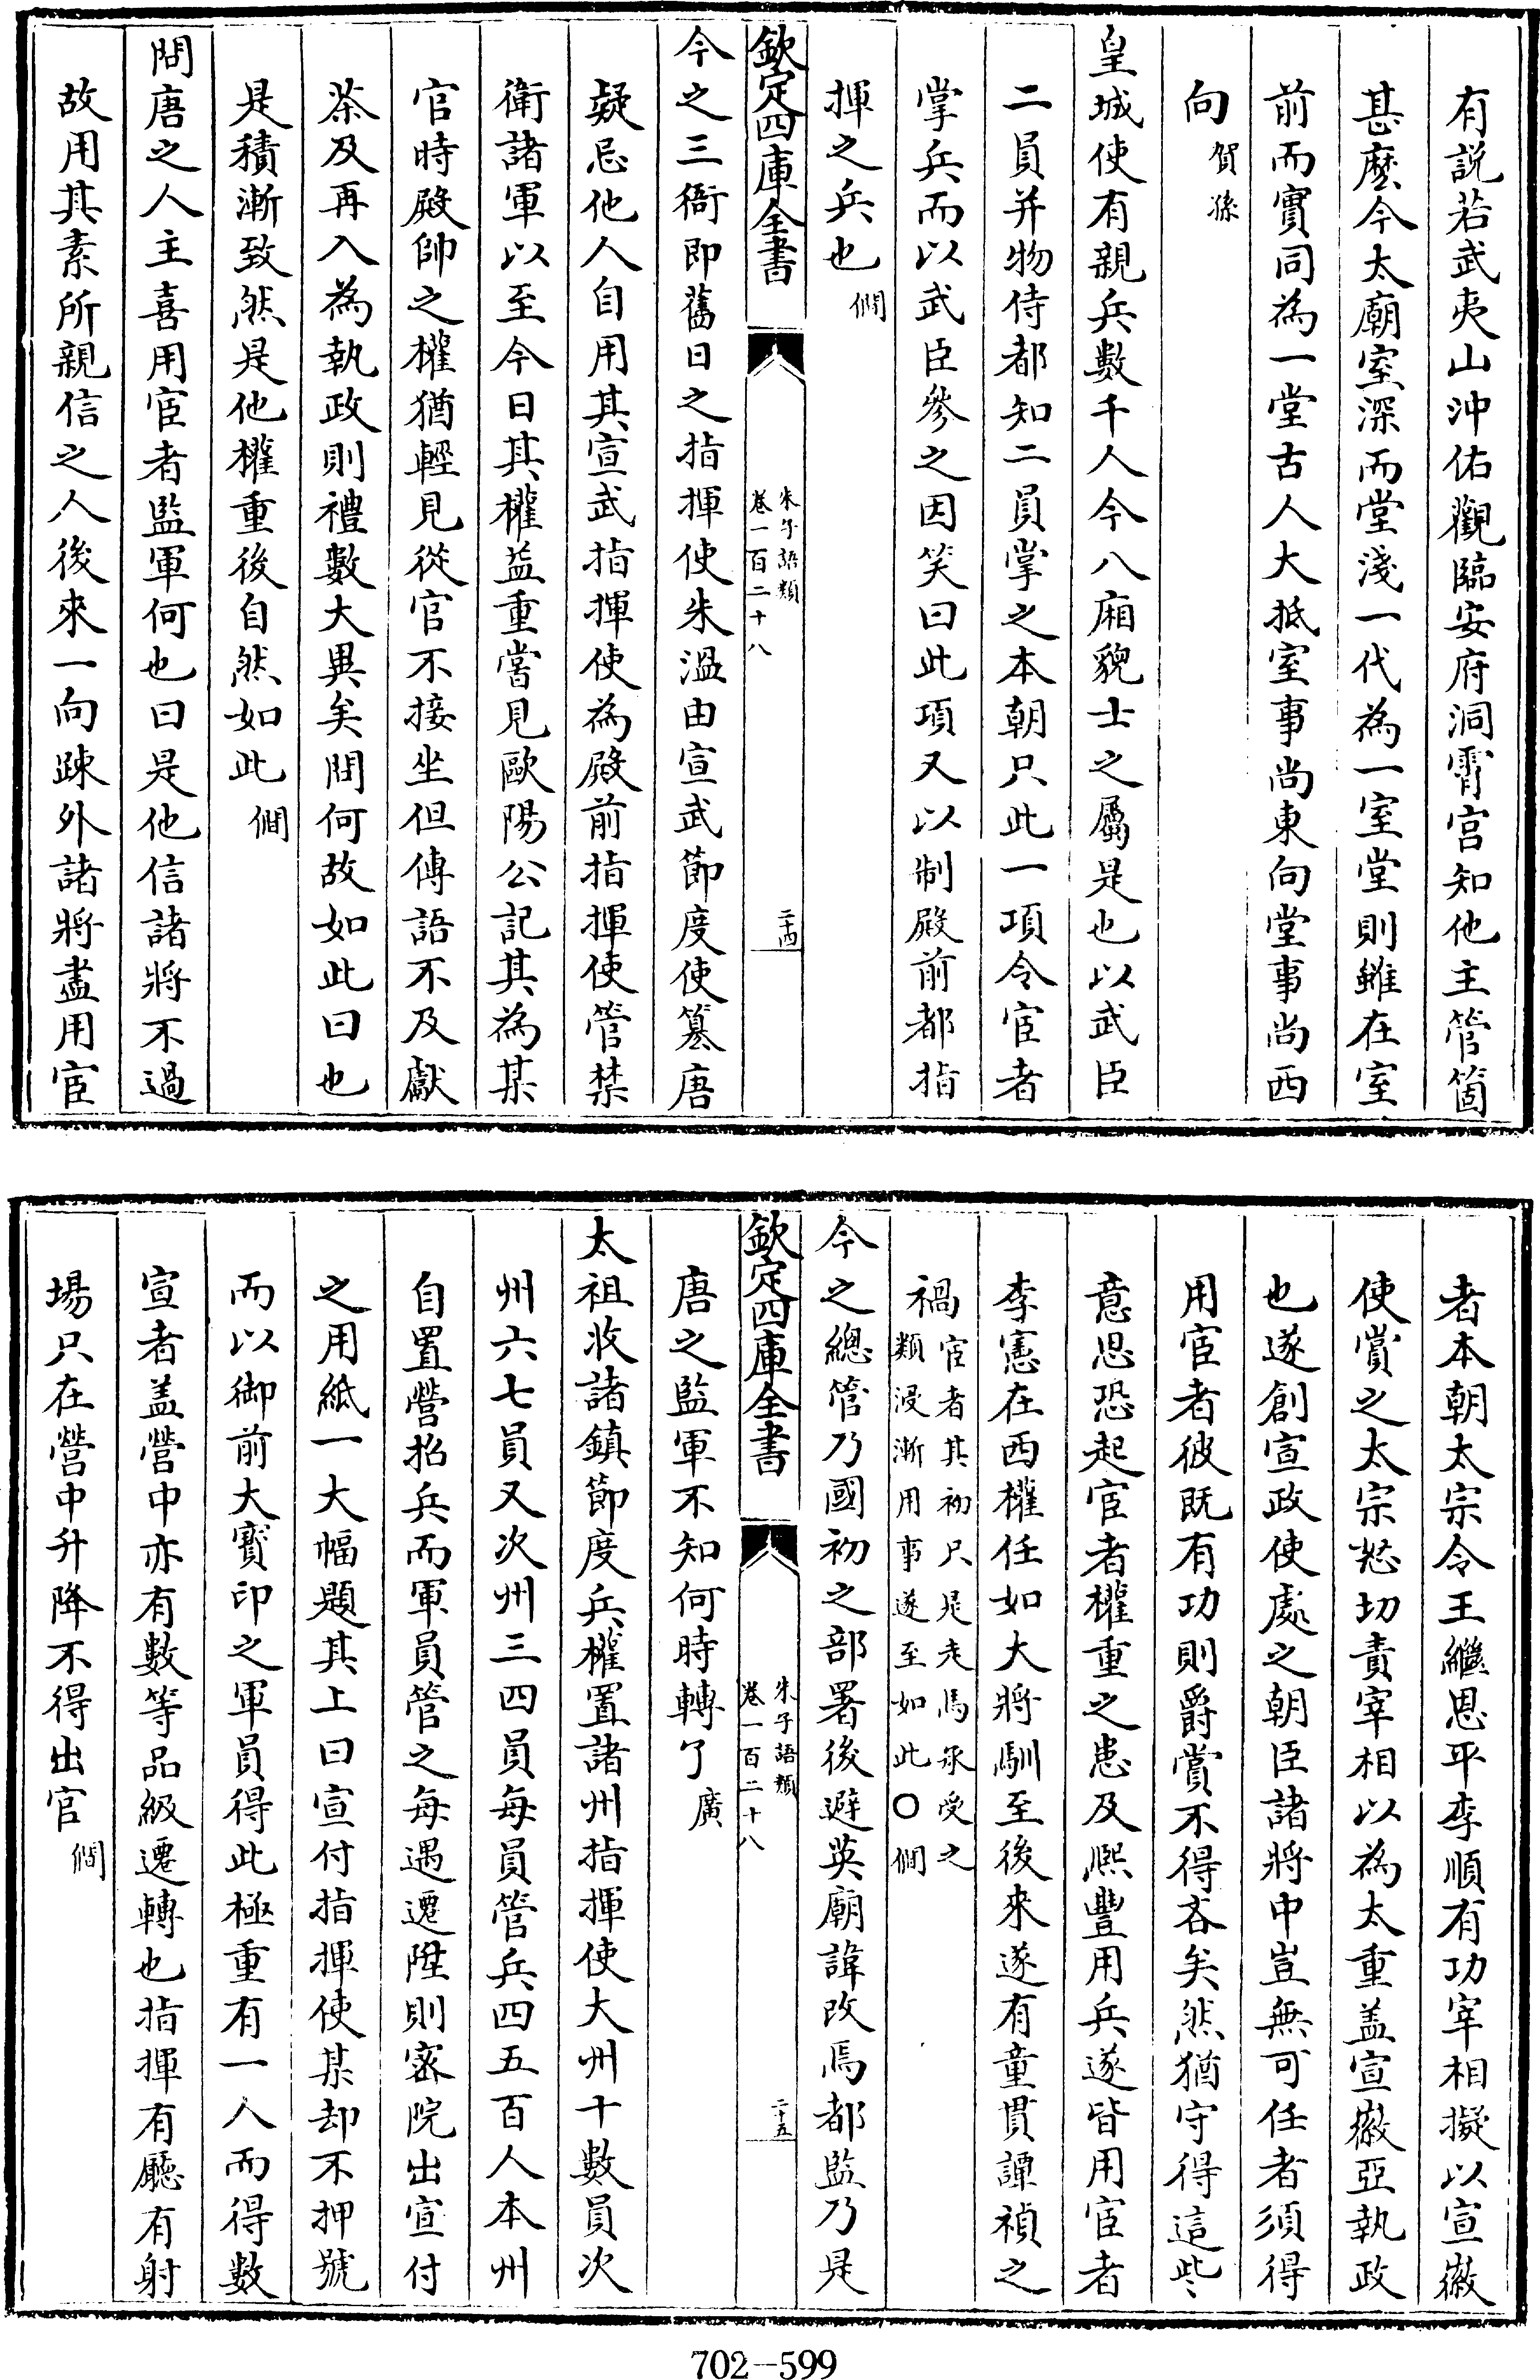 有説若武夷山沖佑觀臨安府洞霄宫知他主管箇
甚麽今太廟室深而堂淺一代為一室堂則雖在室
前而實同為一堂古人大抵室事尚東向堂事尚西
向賀孫
皇城使有親兵數千人今八廂貌士之屬是也以武臣
二員并物侍都知二員掌之本朝只此一項令宦者
掌兵而以武臣參之因笑曰此項又以制殿前都指
揮之兵也僩
欽定四庫全書
朱子語類
卷一百二十八
二十四
今之三衙即舊日之指揮使朱温由宣武節度使簒唐
疑忌他人自用其宣武指揮使為殿前指揮使管禁
衛諸軍以至今日其權益重嘗見歐陽公記其為某
官時殿帥之權猶輕見從官不接坐但傳語不及獻
茶及再入為執政則禮數大異矣問何故如此曰也
是積漸致然是他權重後自然如此僩
問唐之人主喜用宦者監軍何也曰是他信諸將不過
故用其素所親信之人後來一向疎外諸將盡用宦
者本朝太宗令王繼恩平李順有功宰相擬以宣徽
使賞之太宗怒切責宰相以為太重盖宣徽亞執政
也遂創宣政使處之朝臣諸將中豈無可任者須得
用宦者彼既有功則爵賞不得吝矣然猶守得這些
意思恐起宦者權重之患及熙豐用兵遂皆用宦者
李憲在西權任如大將馴至後來遂有童貫譚禎之
禍宦者其初只是走馬承受之
類浸漸用事遂至如此○僩
今之總管乃國初之部署後避英廟諱改焉都監乃是
欽定四庫全書
朱子語類
卷一百二十八
二十五
唐之監軍不知何時轉了廣
太祖收諸鎮節度兵權置諸州指揮使大州十數員次
州六七員又次州三四員每員管兵四五百人本州
自置營招兵而軍員管之每遇遷陞則密院出宣付
之用紙一大幅題其上曰宣付指揮使某却不押號
而以御前大寳印之軍員得此極重有一人而得數
宣者盖營中亦有數等品級遷轉也指揮有廳有射
場只在營中升降不得出官僩
702—599